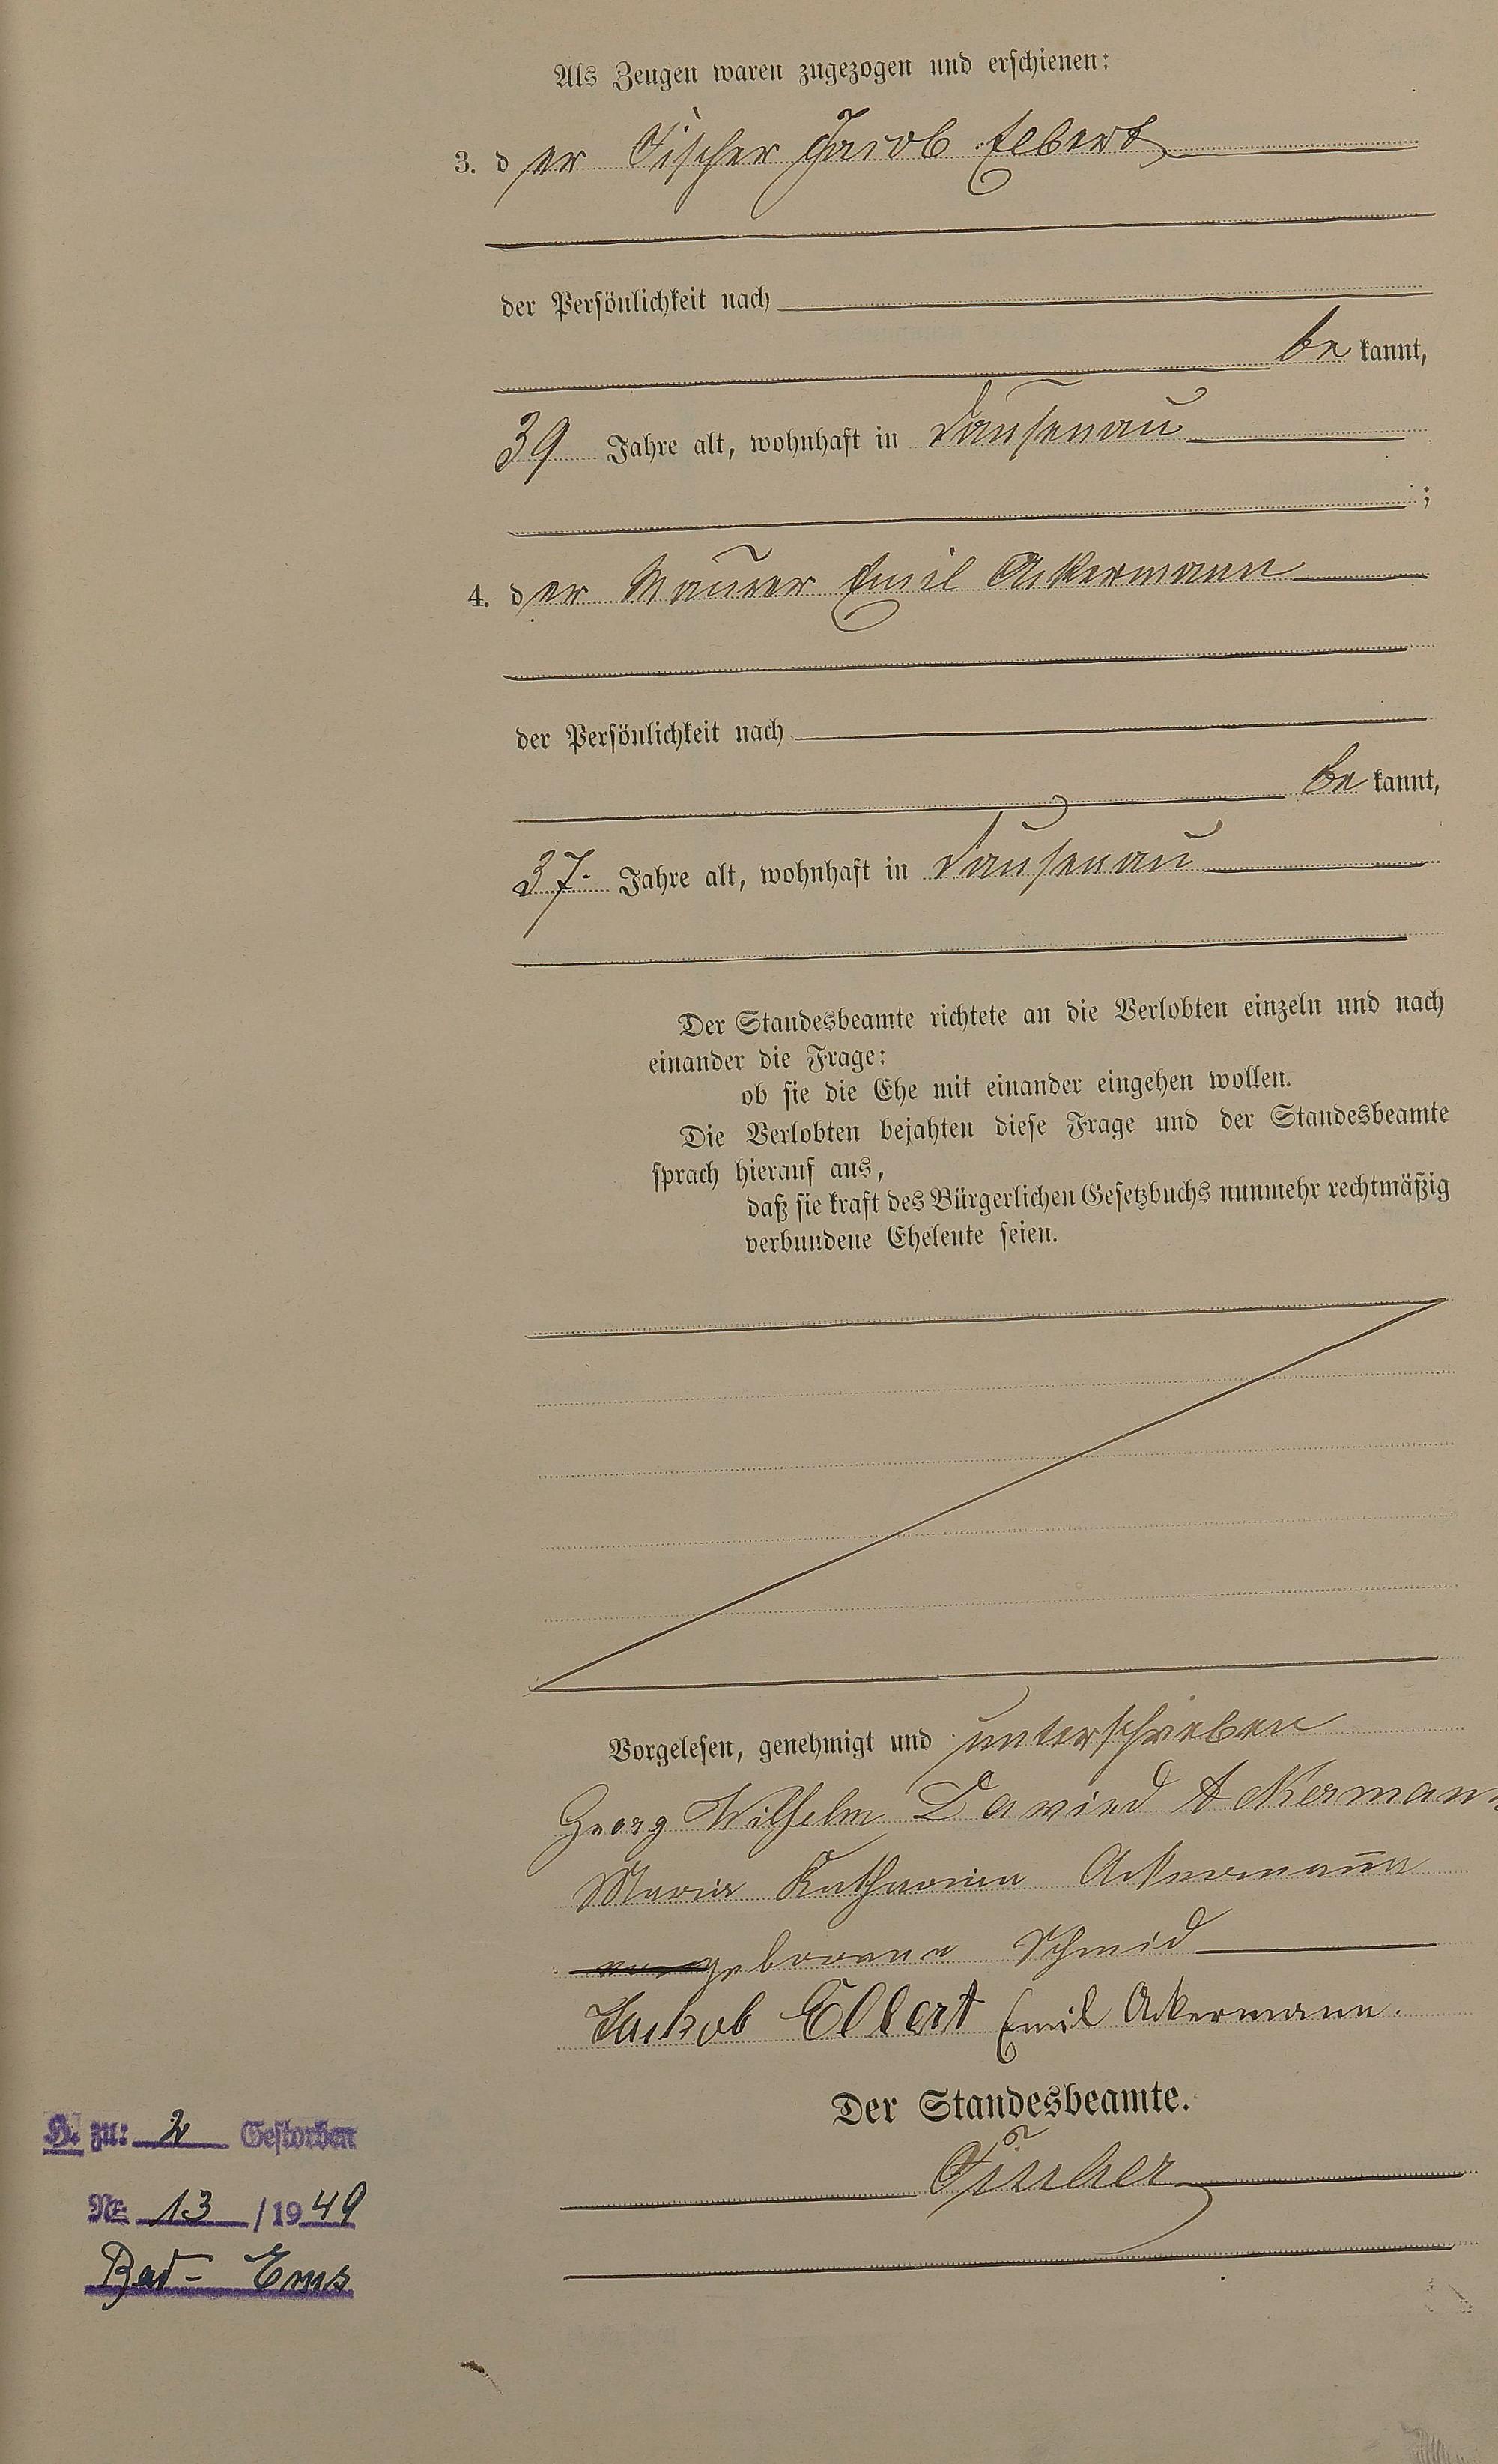 Als Zeugen waren zugezogen und erschienen:
3. der Fischer Jacob Elbert
der Persönlichkeit nach
be kannt,
39 Jahre alt, wohnhaft in Dausenau
;
4. der Maurer Emil Ackermann
der Persönlichkeit nach
be kannt,
37 Jahre alt, wohnhaft in Dausenau
Der Standesbeamte richtete an die Verlobten einzeln und nach
einander die Frage:
ob sie die Ehe mit einander eingehen wollen.
Die Verlobten bejahten diese Frage und der Standesbeamte
sprach hierauf aus,
daß sie kraft des Bürgerlichen Gesetzbuchs nunmehr rechtmäßig
verbundene Eheleute seien.
Vorgelesen, genehmigt und unterschrieben
Georg Wilhelm David Ackermann
Maria Katharina Ackermann
geborene Schmid
Jackob Elbert Emil Ackermann.
Der Standesbeamte.
Fischer
H. zu: 2 Gestorben
Nr. 13 / 1949
Bad-Ems